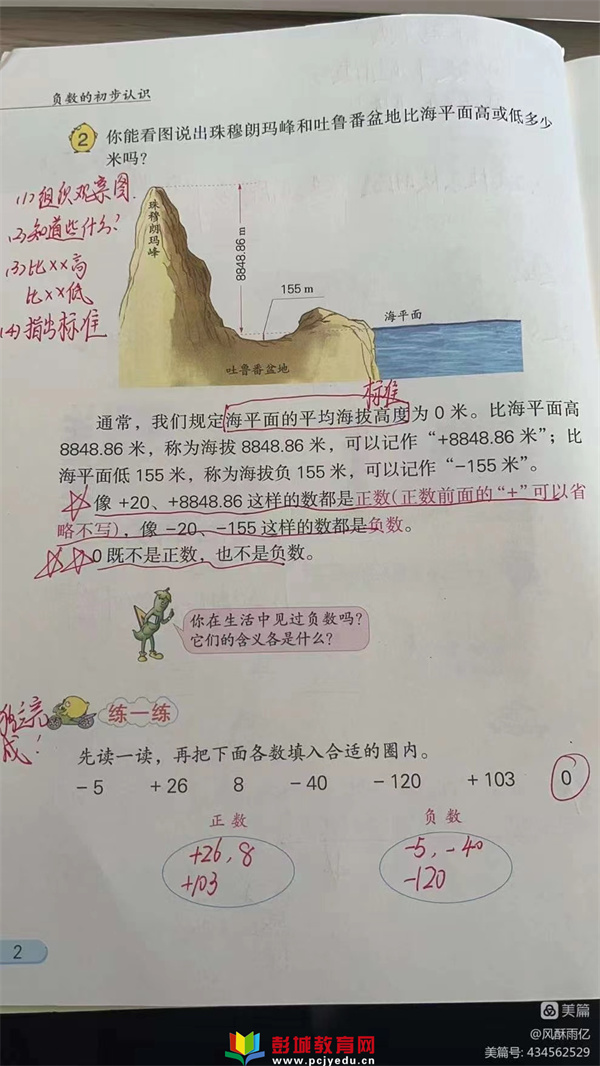 负数的初步认识
2 你能看图说出珠穆朗玛峰和吐鲁番盆地比海平面高或低多少
米吗？
(1)组织观察图.
(2)知道些什么？
(3)比××高
比××低
(4)指出标准
珠穆朗玛峰
8848.86 m
155 m
海平面
吐鲁番盆地
标准
通常，我们规定海平面的平均海拔高度为 0 米。比海平面高
8848.86 米，称为海拔 8848.86 米，可以记作“+8848.86 米”；比
海平面低 155 米，称为海拔负 155 米，可以记作“-155 米”。
像 +20、+8848.86 这样的数都是正数(正数前面的“+”可以省
略不写)，像 -20、-155 这样的数都是负数。
0 既不是正数，也不是负数。
你在生活中见过负数吗？
它们的含义各是什么？
独立完
成！
练一练
先读一读，再把下面各数填入合适的圈内。
-5 +26 8 -40 -120 +103 0
正数 负数
+26, 8
+103
-5, -40
-120
2
美篇
@风酥雨亿
美篇号: 434562529
彭城教育网
www.pcjyedu.cn